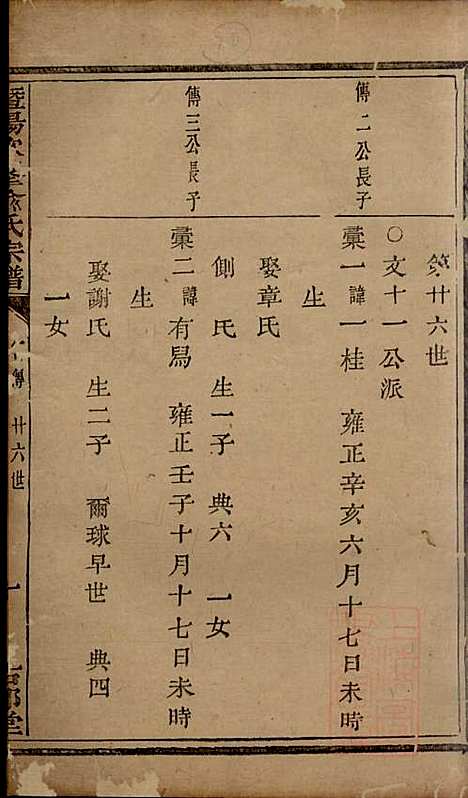 第廿六世
〇文十一公派
傳二公長子
彚一諱一桂 雍正辛亥六月十七日未時
生
娶章氏
側氏 生一子 典六 一女
傳三公長子
彚二諱有舄 雍正壬子十月十七日未時
生
娶謝氏 生二子 爾球早世 典四
一女
氏宗譜
傳 廿六世
堂